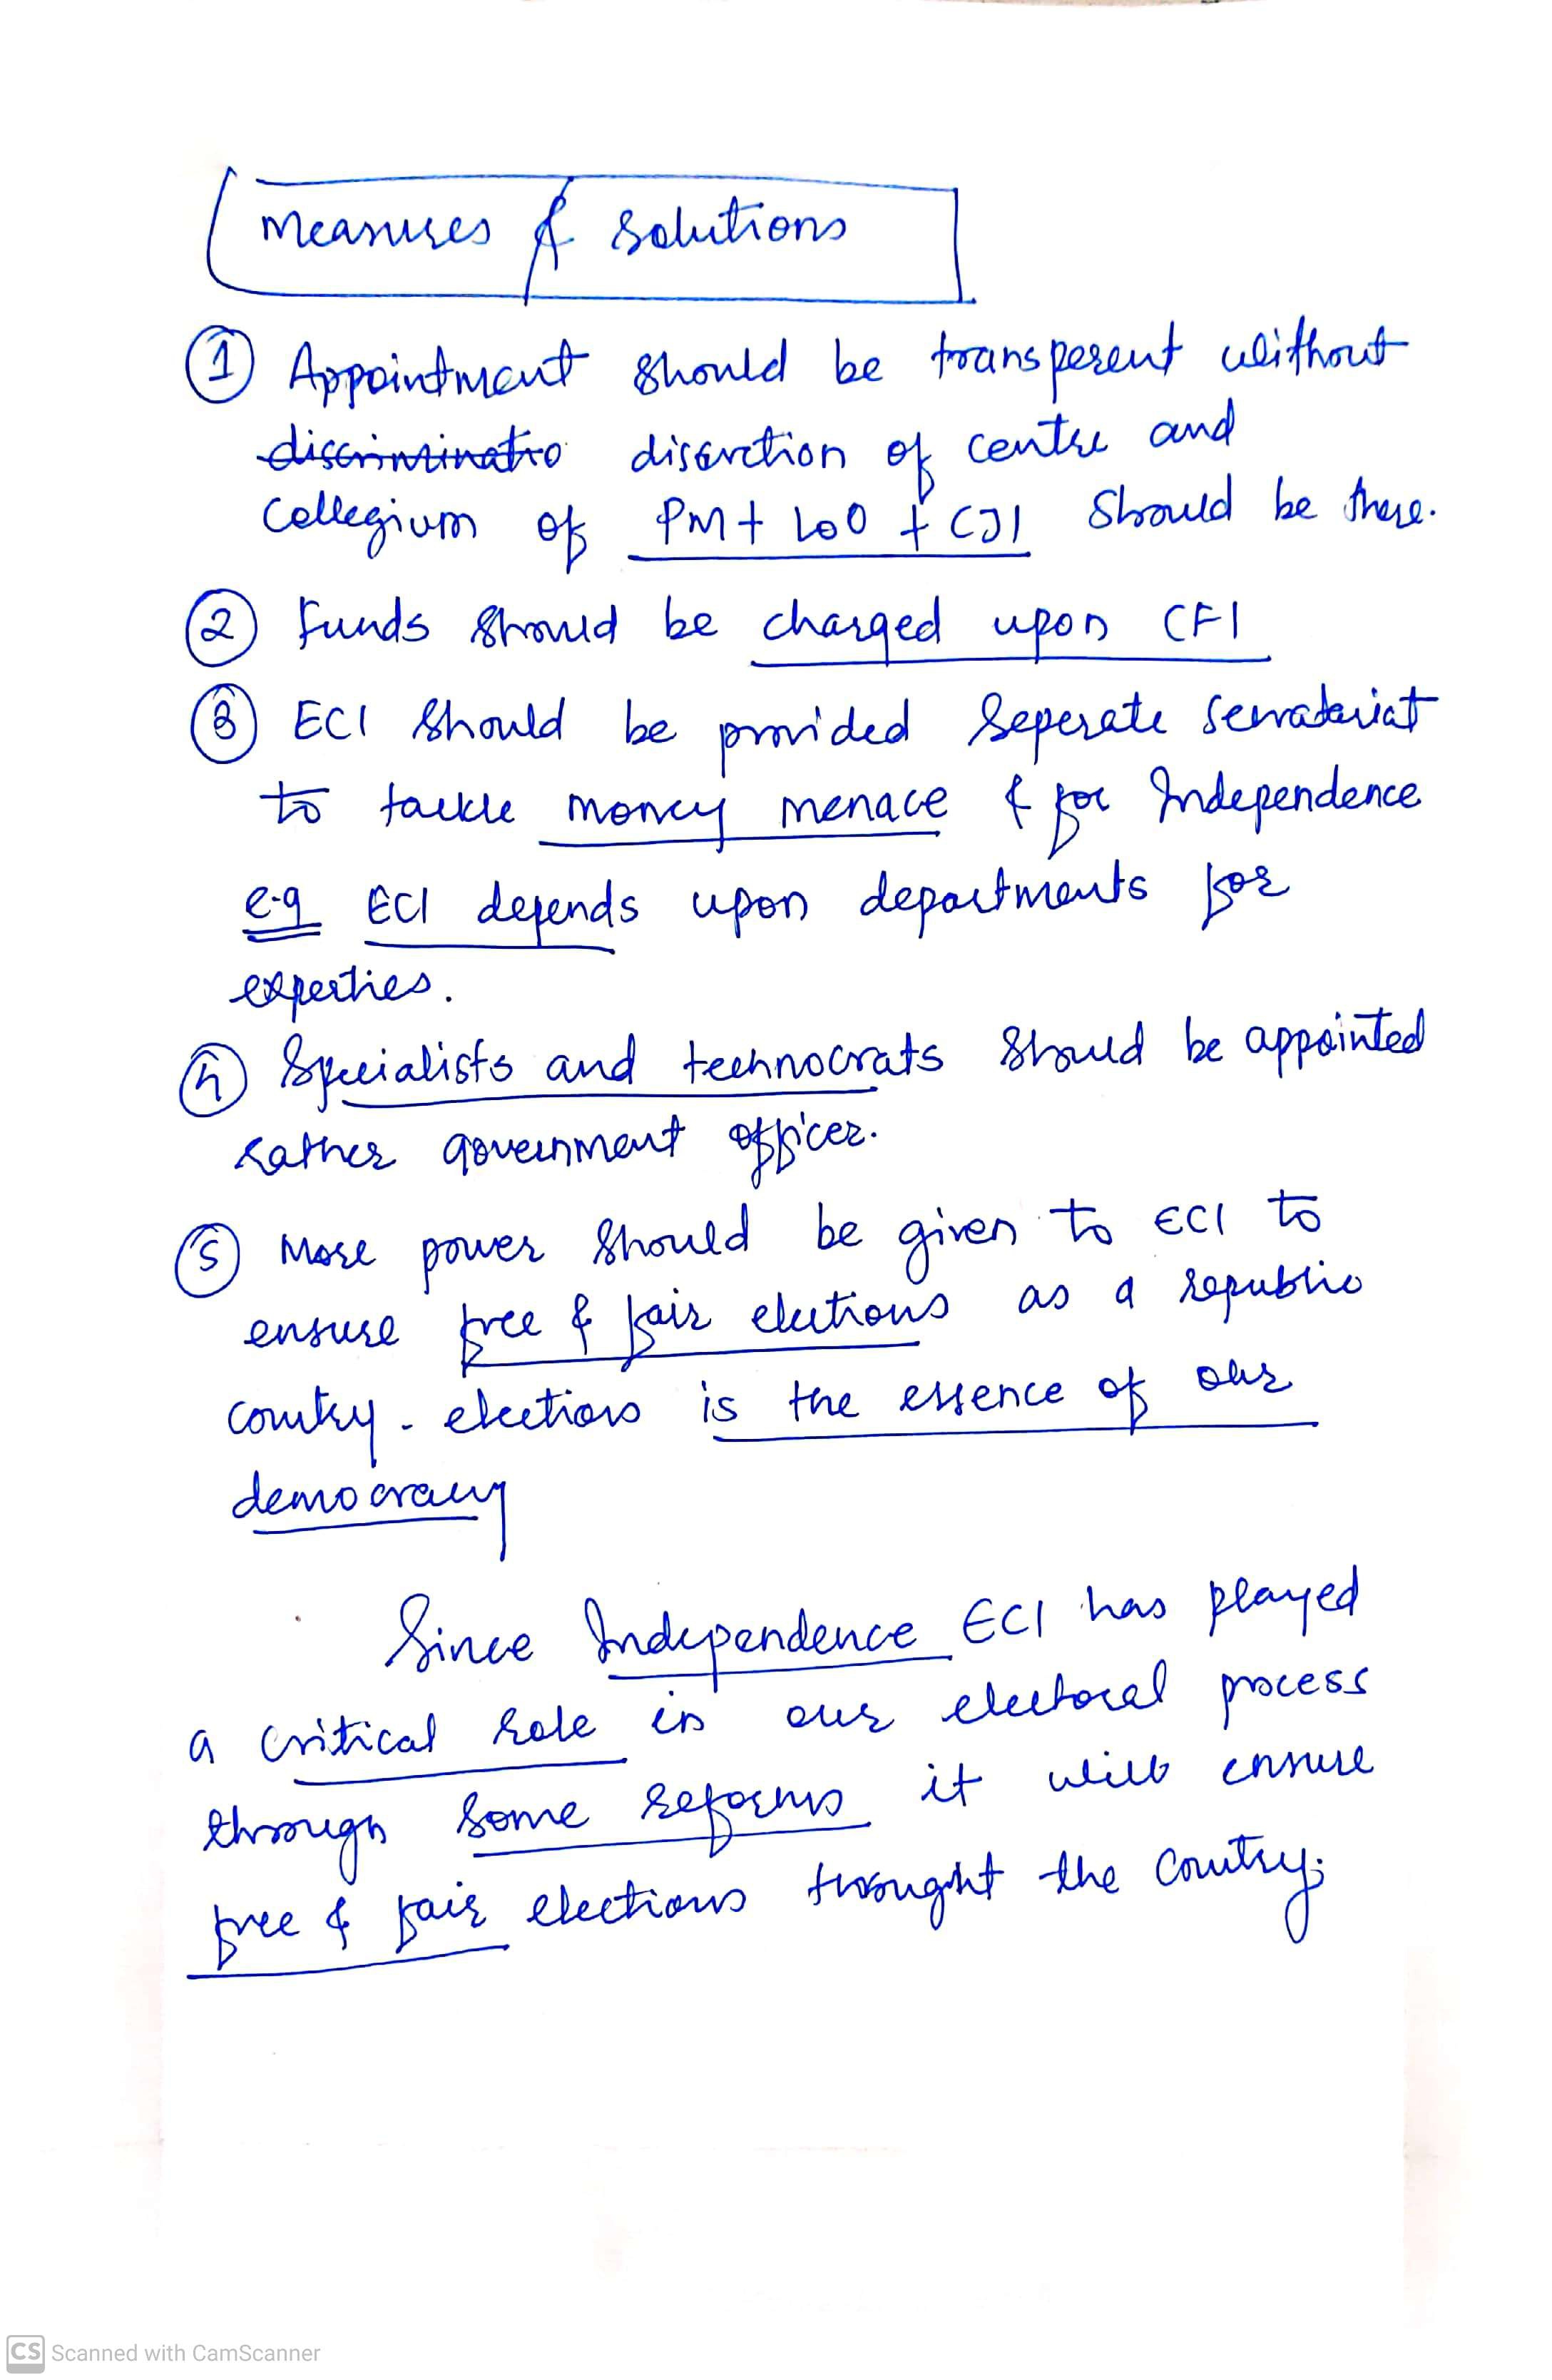 Measures & Solutions
① Appointment should be transperent without
discriminatio discretion of centre and
Collegium of PM + LoO + CJI should be there.
② Funds should be charged upon CFI
③ ECI should be provided Seperate secratariat
to tackle money menace & for Independence
e.g ECI depends upon departments for
experties.
④ Specialists and technocrats should be appointed
rather government officer.
⑤ More power should be given to ECI to
ensure free & fair elections as a republic
country - elections is the essence of our
democracy
Since Independence ECI has played
a critical role in our electoral process
through some reforms it will ensure
free & fair elections throught the country.
CS Scanned with CamScanner